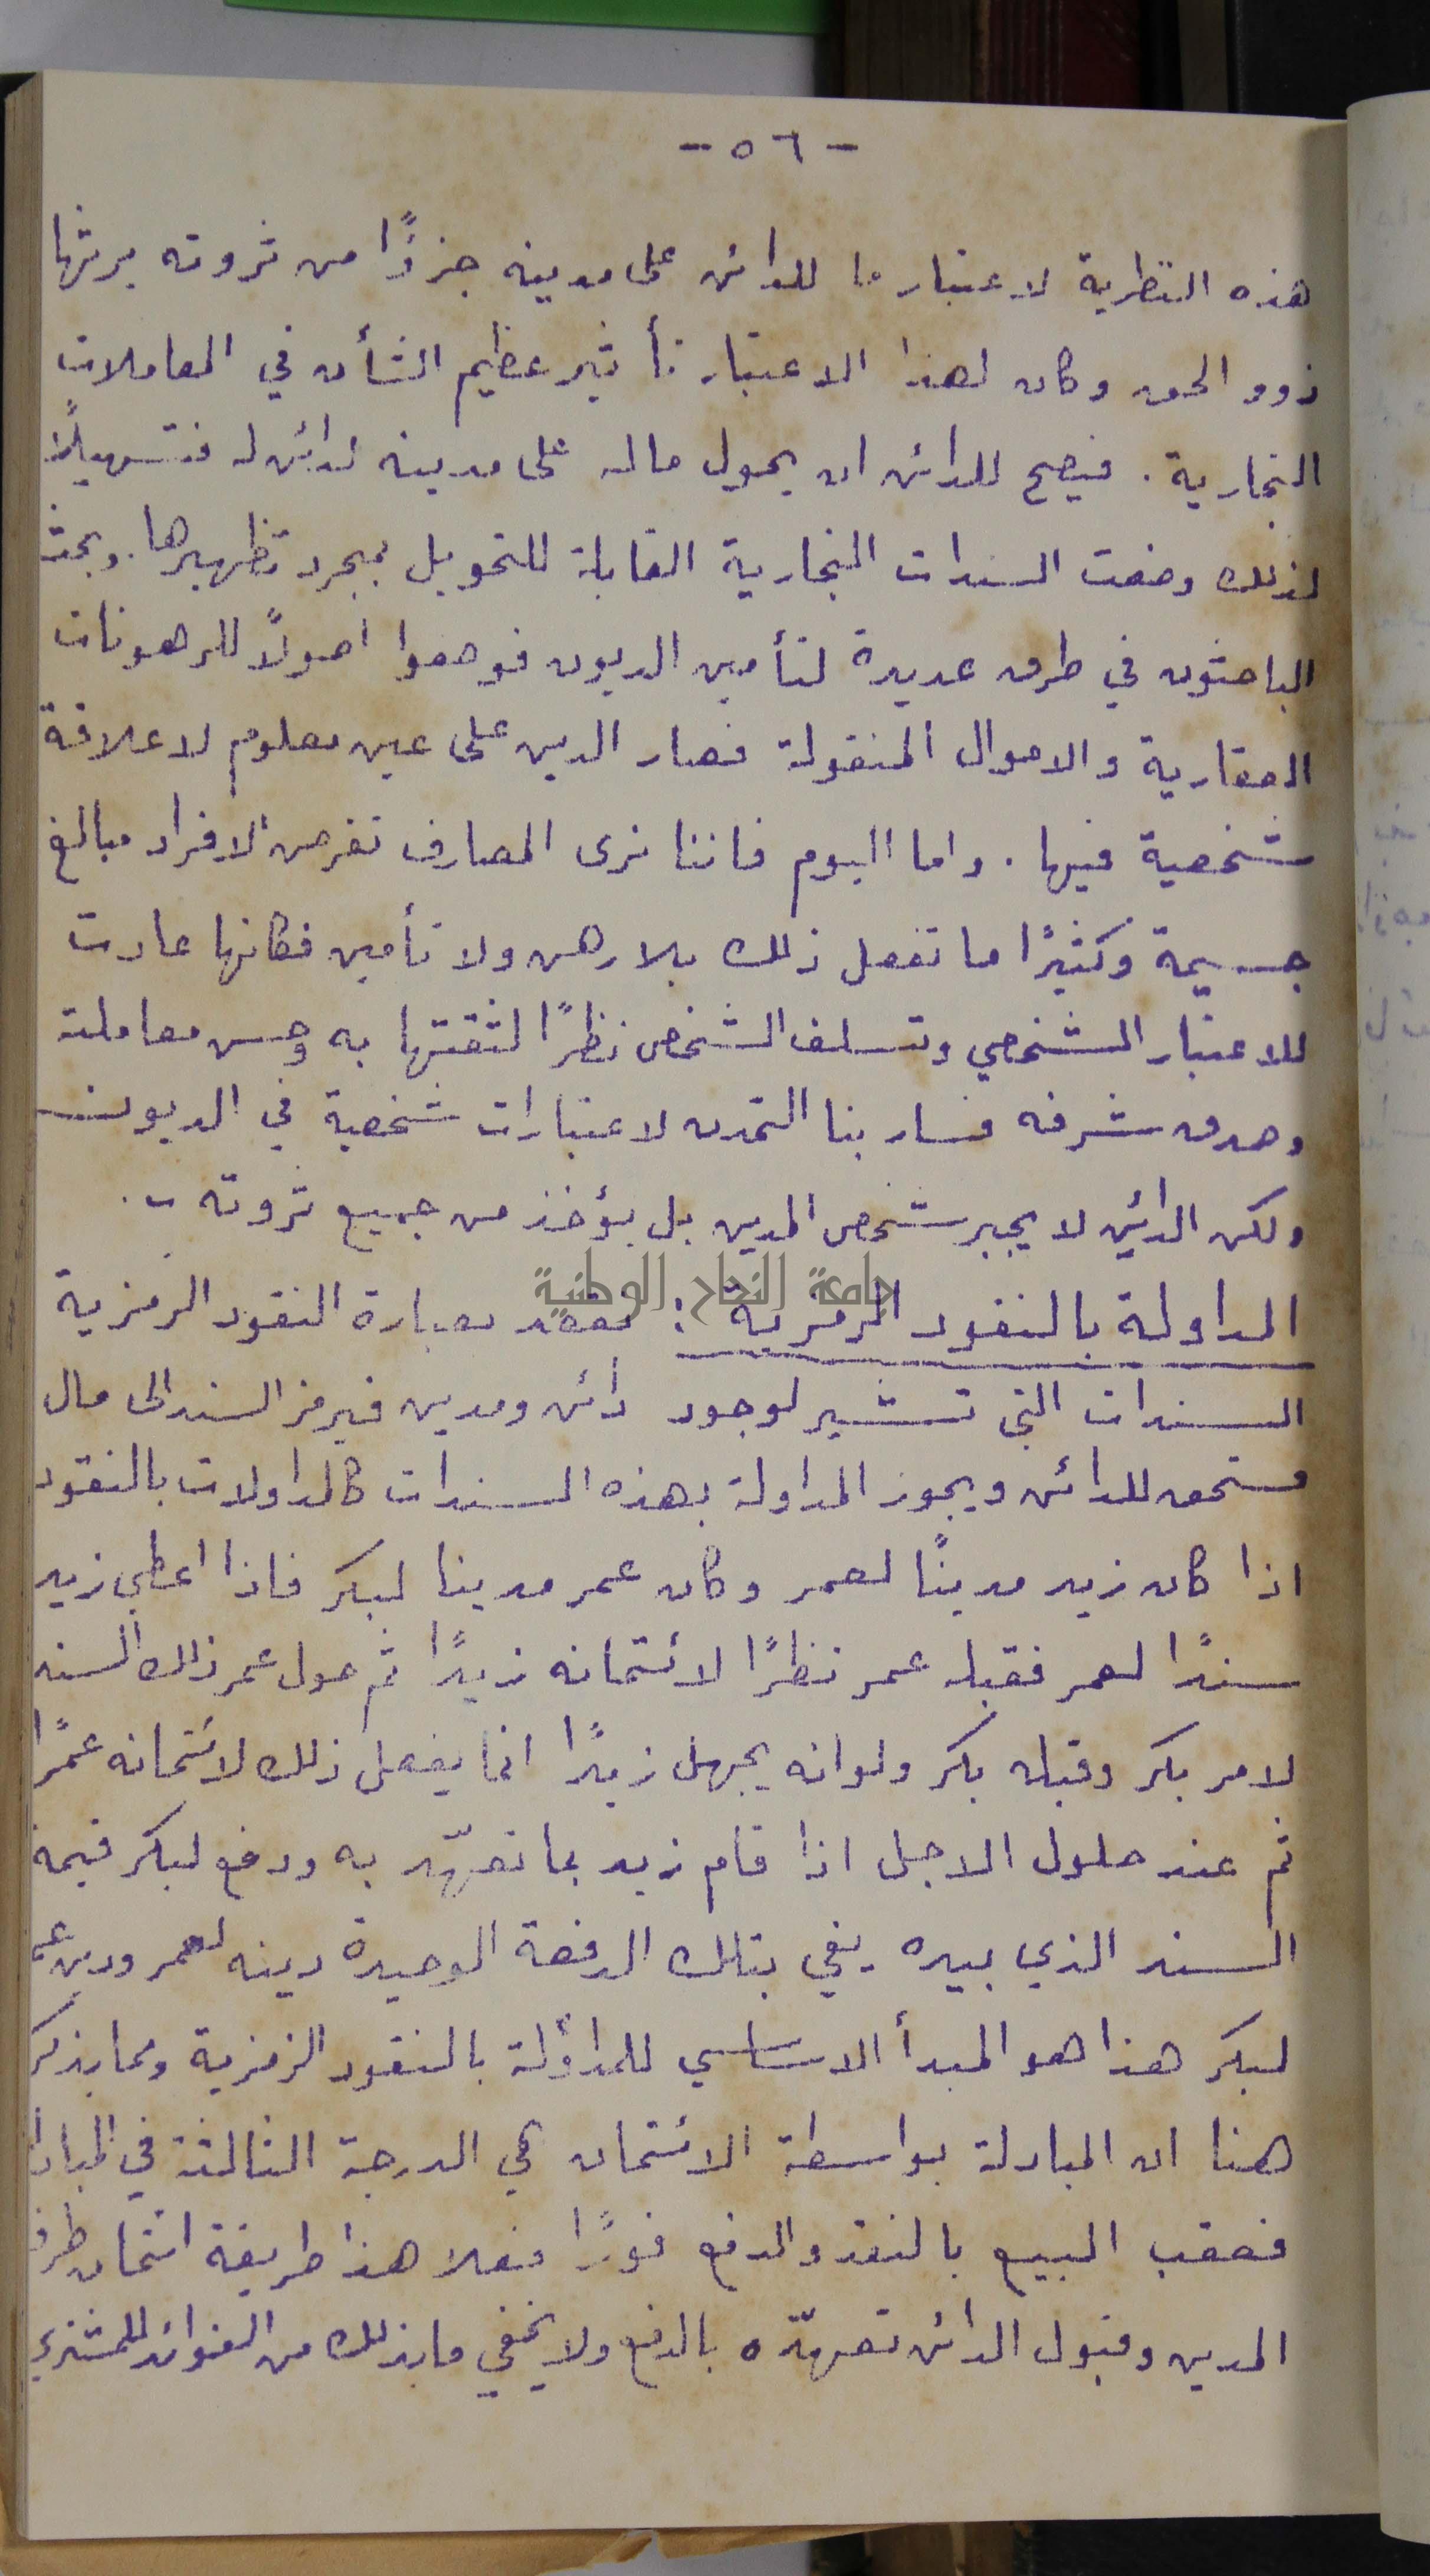 - ٥٦ -
هذه النظرية لاعتبار ما للدائن على مدينه جزؤًا من ثروته يرثها
ذوو الحق وكان لهذا الاعتبار تأثير عظيم الشأن في المعاملات
التجارية . فيصح للدائن ان يحول ماله على مدينه لدائن له فتسهيلاً
لذلك وضعت السندات التجارية القابلة للتحويل بمجرد تظهيرها . وبحث
الباحثون في طرق عديدة لتأمين الديون فوضعوا اصولاً للرهونات
العقارية والاموال المنقولة فصار الدين على عين معلوم لا علاقة
شخصية فيها . واما اليوم فاننا نرى المصارف تقرض الافراد مبالغ
جسيمة وكثيرًا ما تفعل ذلك بلا رهن ولا تأمين فكانها عادت
للاعتبار الشخصي وتسلف الشخص نظرًا لثقتها به وحسن معاملته
وصدق شرفه فسار بنا التمدن لاعتبارات شخصية في الديون
ولكن الدائن لا يجبر شخص المدين بل يؤخذ من جميع ثروته .
جامعة النجاح الوطنية
المداولة بالنقود الرمزية : نقصد بعبارة النقود الرمزية
السندات التي تشير لوجود دائن ومدين فيرمز السند الى مال
مستحق للدائن ويجوز المداولة بهذه السندات كالمداولات بالنقود
اذا كان زيد مدينًا لعمر وكان عمر مدينا لبكر فاذا اعطي زيد
سندًا لعمر فقبله عمر نظرًا لائتمانه زيدًا ثم حول عمر ذلك السند
لامر بكر وقبله بكر ولوانه يجهل زيدًا انما يفعل ذلك لائتمانه عمرًا
ثم عند حلول الاجل اذا قام زيد بما تعهّد به ودفع لبكر قيمة
السند الذي بيده يفي بتلك الدفعة الوحيدة دينه لعمر ودين
لبكر هذا هو المبدأ الاساسي للمداولة بالنقود الرمزية ومما يذكر
هنا ان المبادلة بواسطة الائتمان هي الدرجة الثالثة في
فعقب البيع بالنقد والدفع فورًا فعلا هذا طريقة ائتمان
المدين وقبول الدائن تعهدّه بالدفع ولا يخفي ما بذلك من الفوائد للمشتري